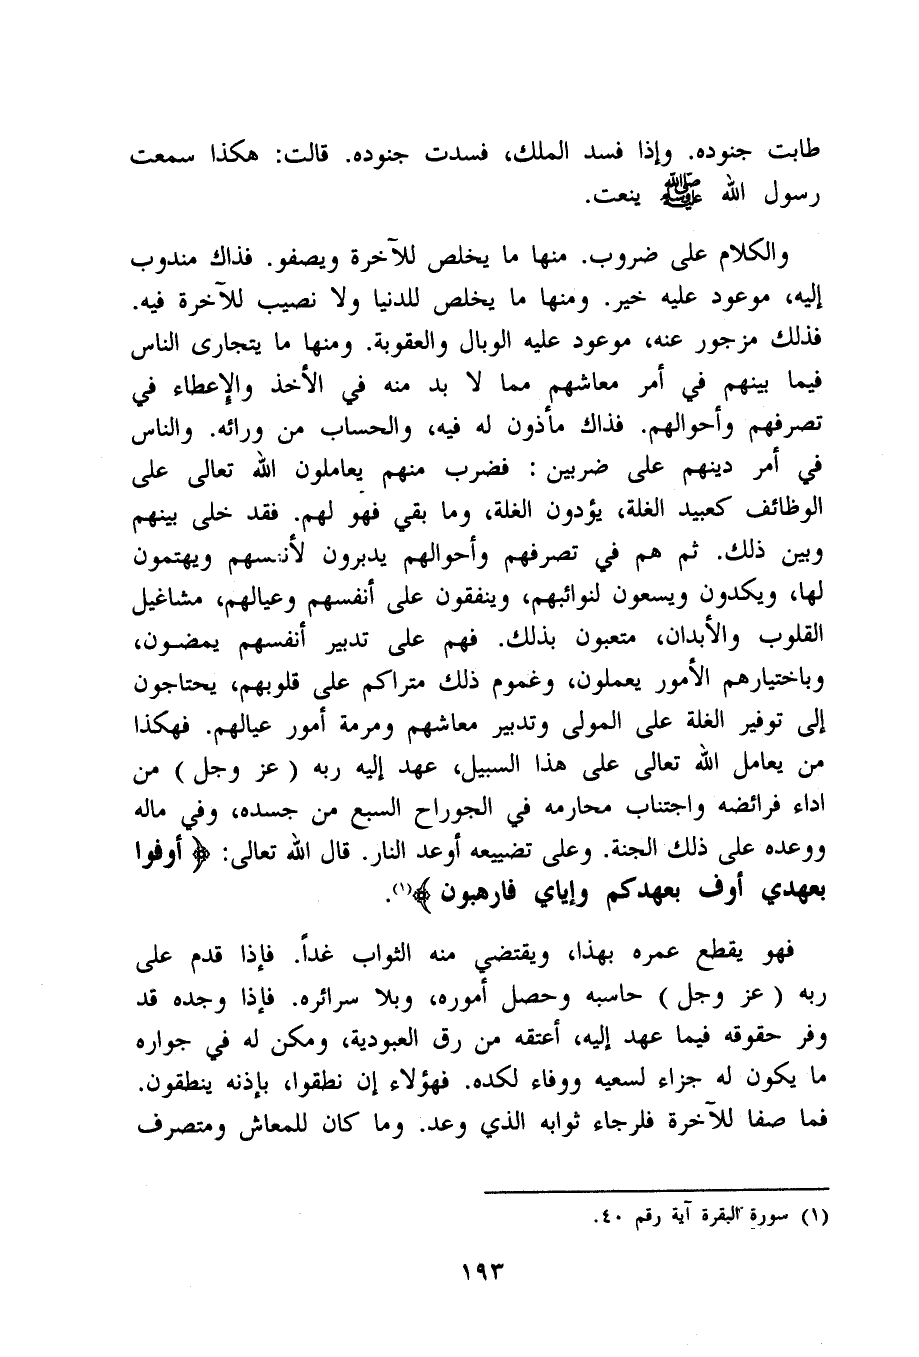 طابت جنوده. وإذا فسد الملك، فسدت جنوده. قالت: هكذا سمعت
رسول الله ﷺ ينعت.
والكلام على ضروب. منها ما يخلص للآخرة ويصفو. فذاك مندوب
إليه، موعود عليه خير. ومنها ما يخلص للدنيا ولا نصيب للآخرة فيه.
فذلك مزجور عنه، موعود عليه الوبال والعقوبة. ومنها ما يتجارى الناس
فيما بينهم في أمر معاشهم مما لا بد منه في الأخذ والإعطاء في
تصرفهم وأحوالهم. فذاك مأذون له فيه، والحساب من ورائه. والناس
في أمر دينهم على ضربين : فضرب منهم يعاملون الله تعالى على
الوظائف كعبيد الغلة، يؤدون الغلة، وما بقي فهو لهم. فقد خلى بينهم
وبين ذلك. ثم هم في تصرفهم وأحوالهم يدبرون لأنفسهم ويهتمون
لها، ويكدون ويسعون لنوائبهم، وينفقون على أنفسهم وعيالهم، مشاغيل
القلوب والأبدان، متعبون بذلك. فهم على تدبير أنفسهم يمضون،
وباختيارهم الأمور يعملون، وغموم ذلك متراكم على قلوبهم، يحتاجون
إلى توفير الغلة على المولى وتدبير معاشهم ومرمة أمور عيالهم. فهكذا
من يعامل الله تعالى على هذا السبيل، عهد إليه ربه ( عز وجل ) من
اداء فرائضه واجتناب محارمه في الجوراح السبع من جسده، وفي ماله
ووعده على ذلك الجنة. وعلى تضييعه أوعد النار. قال الله تعالى: ﴿ أوفوا
بعهدي أوف بعهدكم وإياي فارهبون ﴾(١).
فهو يقطع عمره بهذا، ويقتضي منه الثواب غداً. فإذا قدم على
ربه ( عز وجل ) حاسبه وحصل أموره، وبلا سرائره. فإذا وجده قد
وفر حقوقه فيما عهد إليه، أعتقه من رق العبودية، ومكن له في جواره
ما يكون له جزاء لسعيه ووفاء لكده. فهؤلاء إن نطقوا، بإذنه ينطقون.
فما صفا للآخرة فلرجاء ثوابه الذي وعد. وما كان للمعاش ومتصرف
(١) سورة البقرة آية رقم ٤٠.
١٩٣